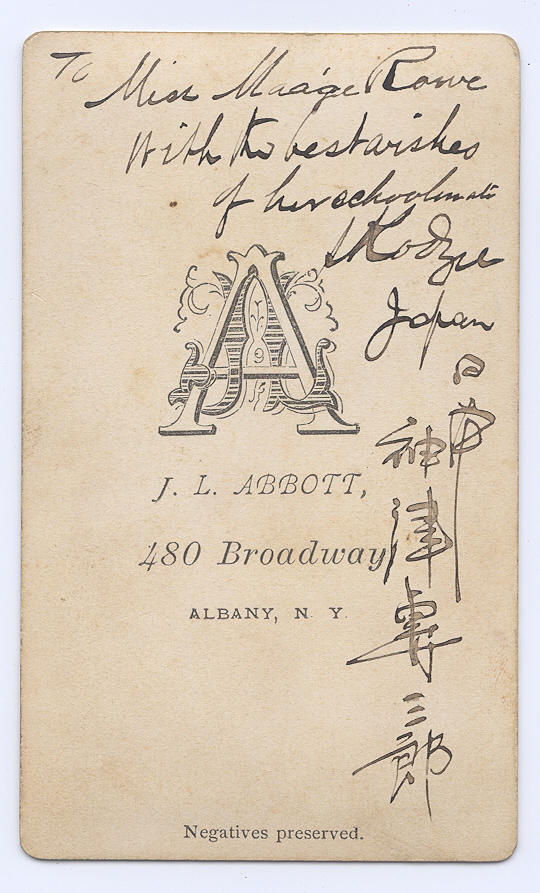 To Miss Maage Rowe
With the best wishes
of her schoolmate
S Kodzu
Japan
日本
神津専三郎
A
J. L. ABBOTT,
480 Broadway
ALBANY, N. Y.
Negatives preserved.